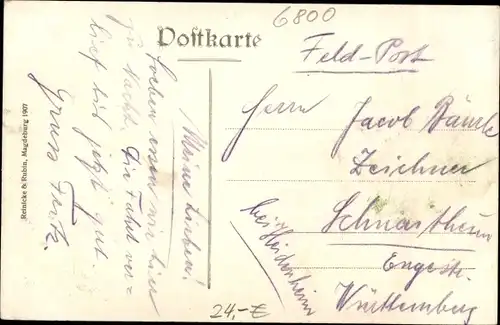 6800
Postkarte
Feld-Post
Meine Lieben!
Soeben essen wir hier
zu Nacht. Die Fahrt ver=
lief bis jetzt gut.
Gruss Fritz.
Herrn Jacob Bäuerle
Zeichner
Schnaitheim
bei Heidenheim
Engestr.
Württemberg
Reinicke & Rubin, Magdeburg 1907
24,-€